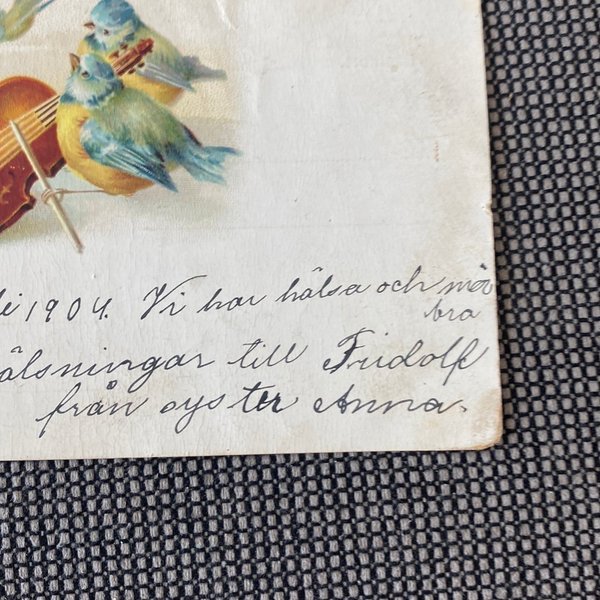 i 1904. Vi har hälsa och mår
bra
älsningar till Fridolf
från syster Anna.